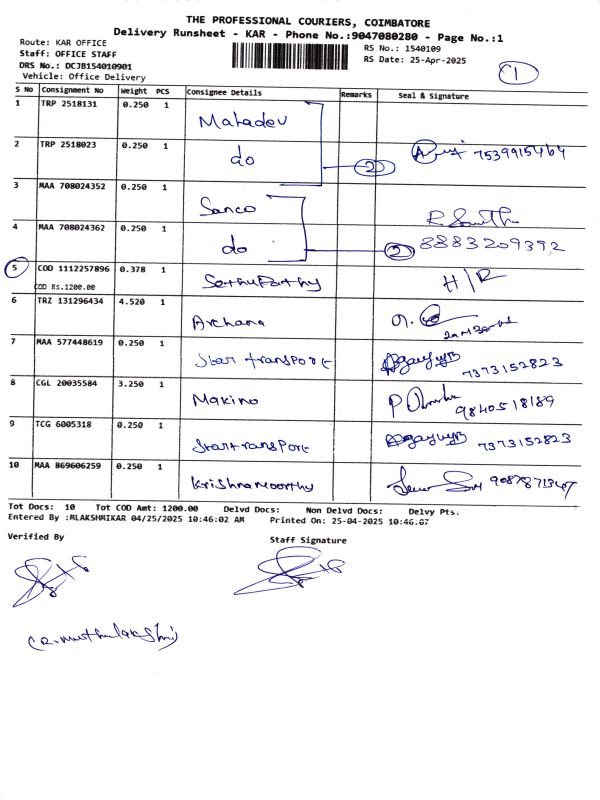 THE PROFESSIONAL COURIERS, COIMBATORE
Delivery Runsheet - KAR - Phone No.:9047080280 - Page No.:1
Route: KAR OFFICE
Staff: OFFICE STAFF
DRS No.: DCJ8154010901
Vehicle: Office Delivery
RS No.: 1540109
RS Date: 25-Apr-2025
S No Consignment No Weight PCS Consignee Details Remarks Seal & Signature
1 TRP 2518131 0.250 1 Mahadev
2 TRP 2518023 0.250 1 do 2 7539915464
3 MAA 708024352 0.250 1 Sanco
4 MAA 708024362 0.250 1 do 2 8883209392
5 COD 1112257896 0.378 1 SethuPathy H/R
COD Rs.1200.00
6 TRZ 131296434 4.520 1 Archana
7 MAA 577448619 0.250 1 Star transPort 7373152823
8 CGL 20035584 3.250 1 Makino 9840518189
9 TCG 6005318 0.250 1 StartransPort 7373152823
10 MAA 869606259 0.250 1 Krishnamoorthy
Tot Docs: 10 Tot COD Amt: 1200.00 Delvd Docs: Non Delvd Docs: Delvy Pts.
Entered By :MLAKSHMIKAR 04/25/2025 10:46:02 AM Printed On: 25-04-2025 10:46:07
Verified By Staff Signature
(R. Muthulakshmi)